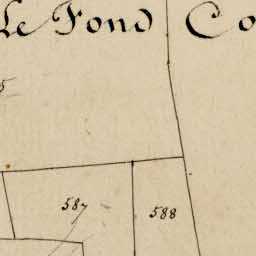 Le Fond Co
587
588